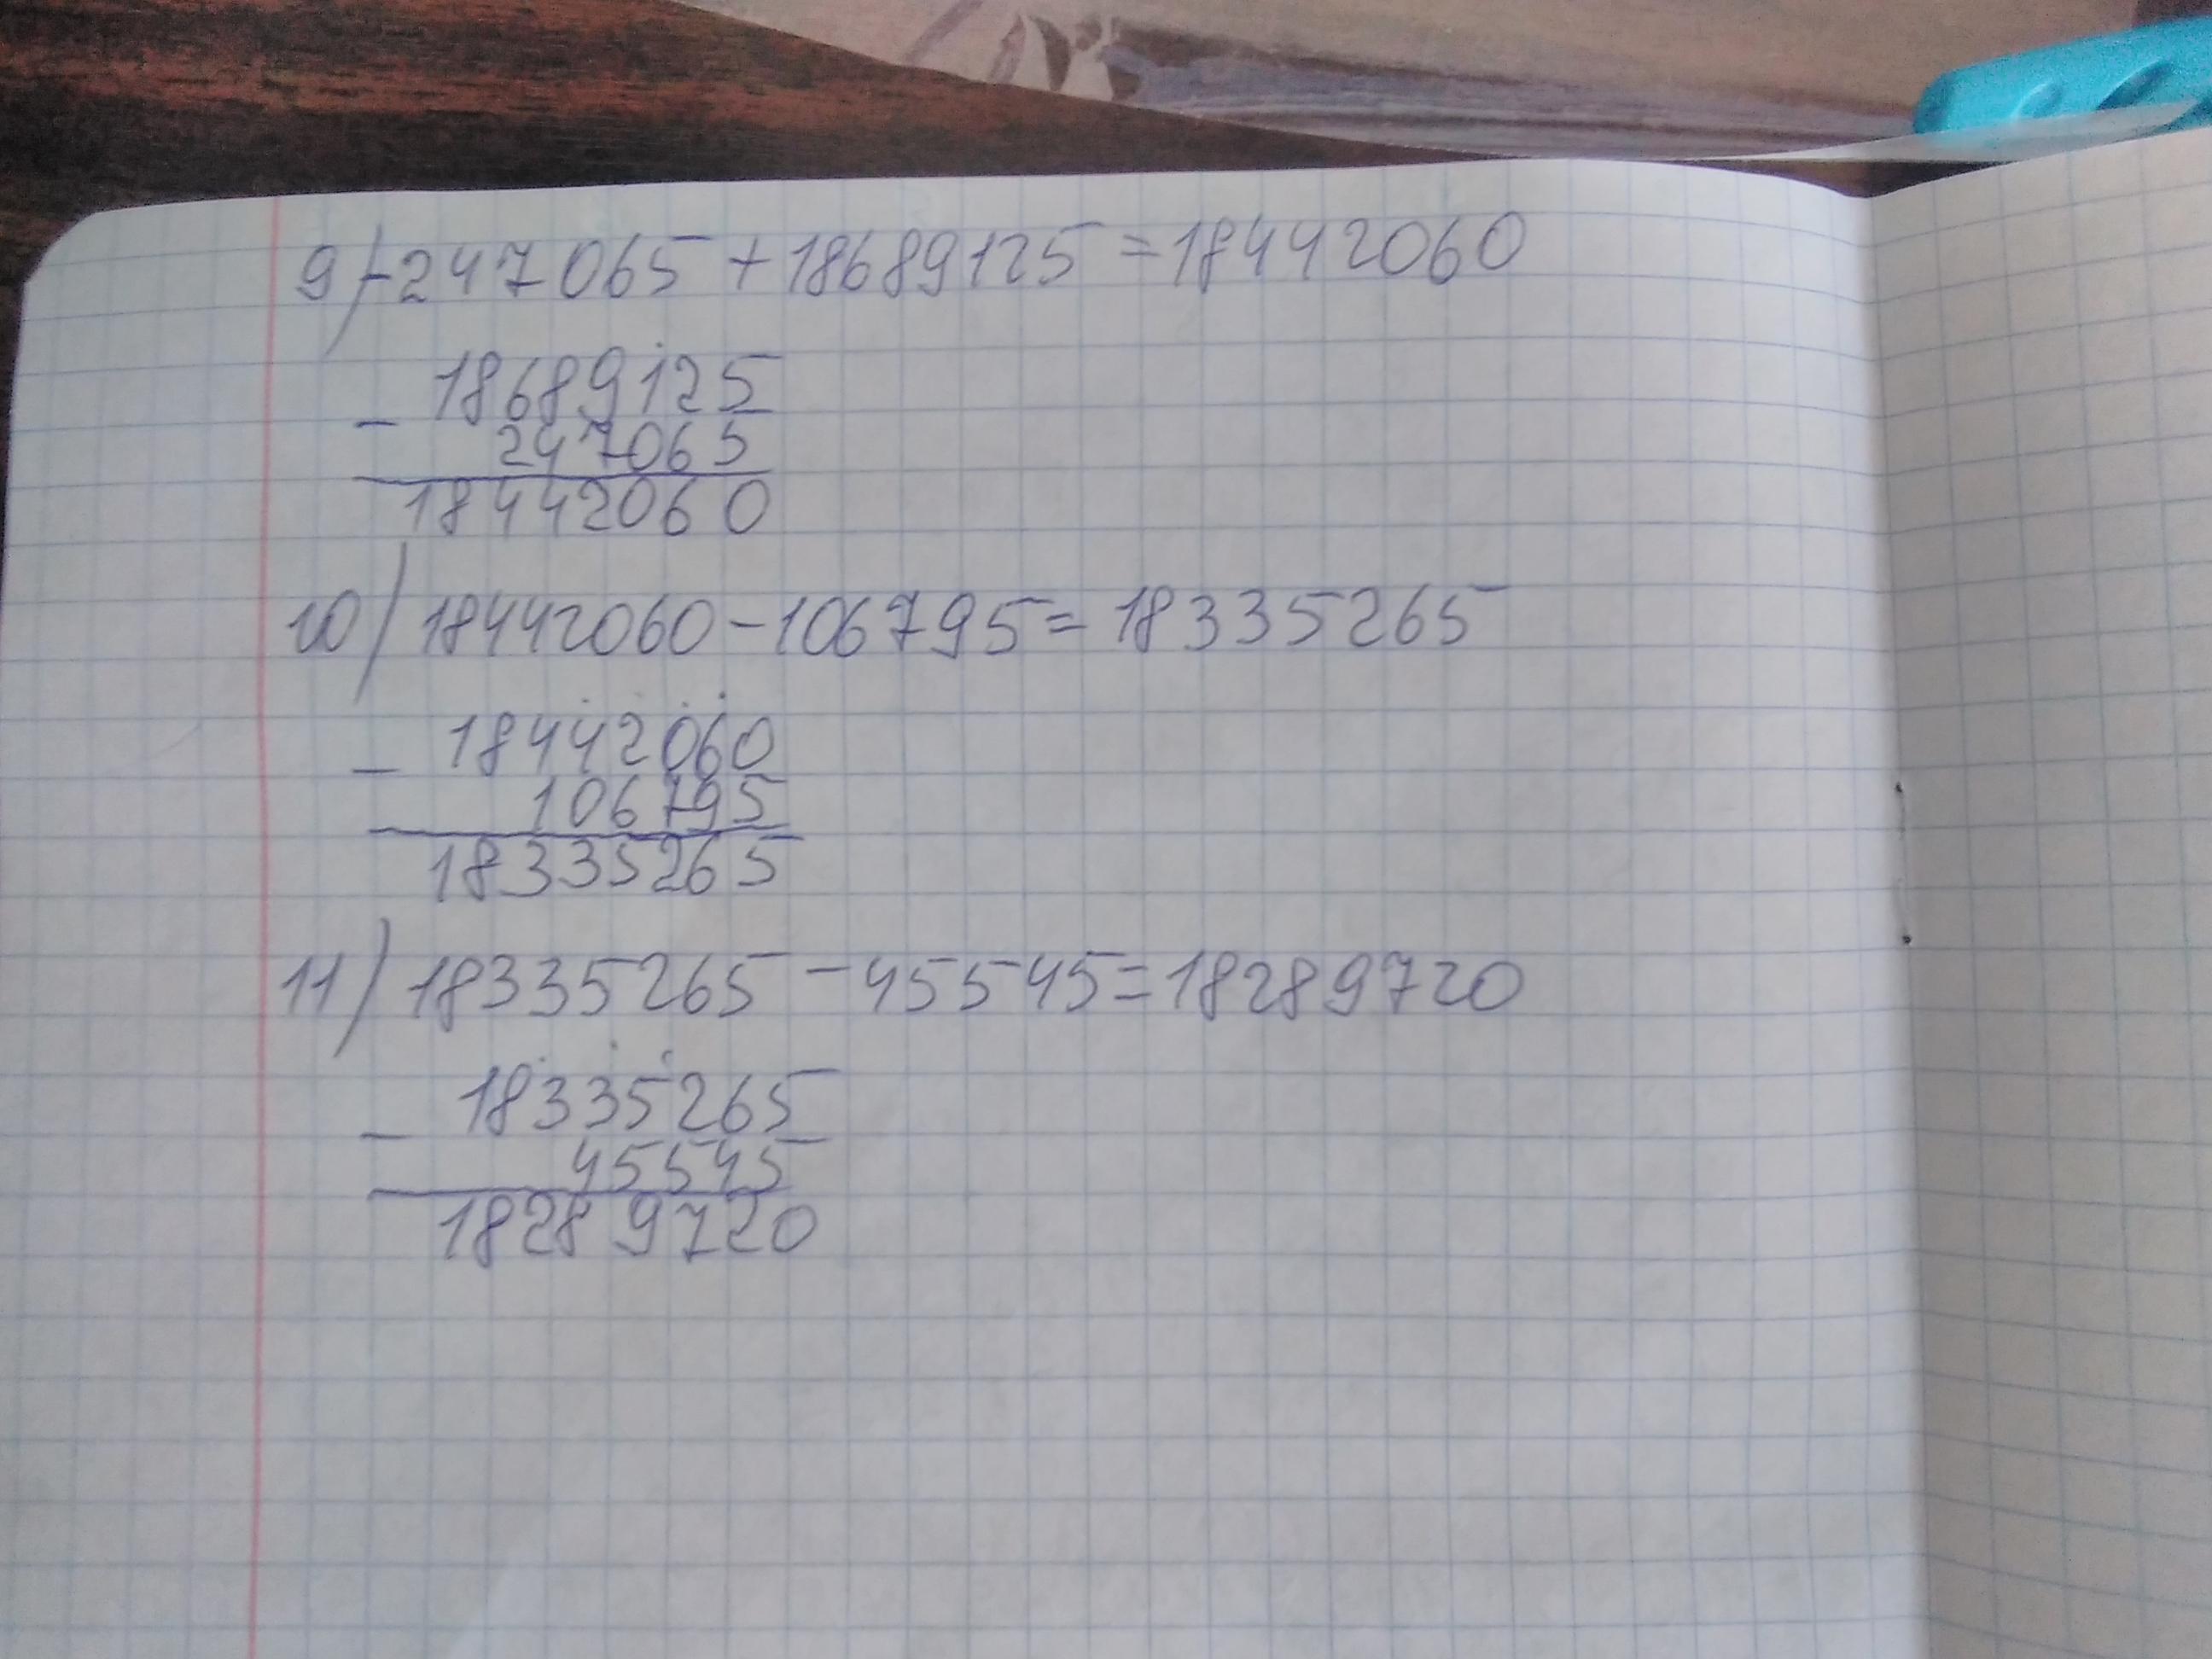 9) -247065 + 18689125 = 18442060
18689125
-
247065
18442060
10) 18442060 - 106795 = 18335265
18442060
-
106795
18335265
11) 18335265 - 45545 = 18289720
18335265
-
45545
18289720